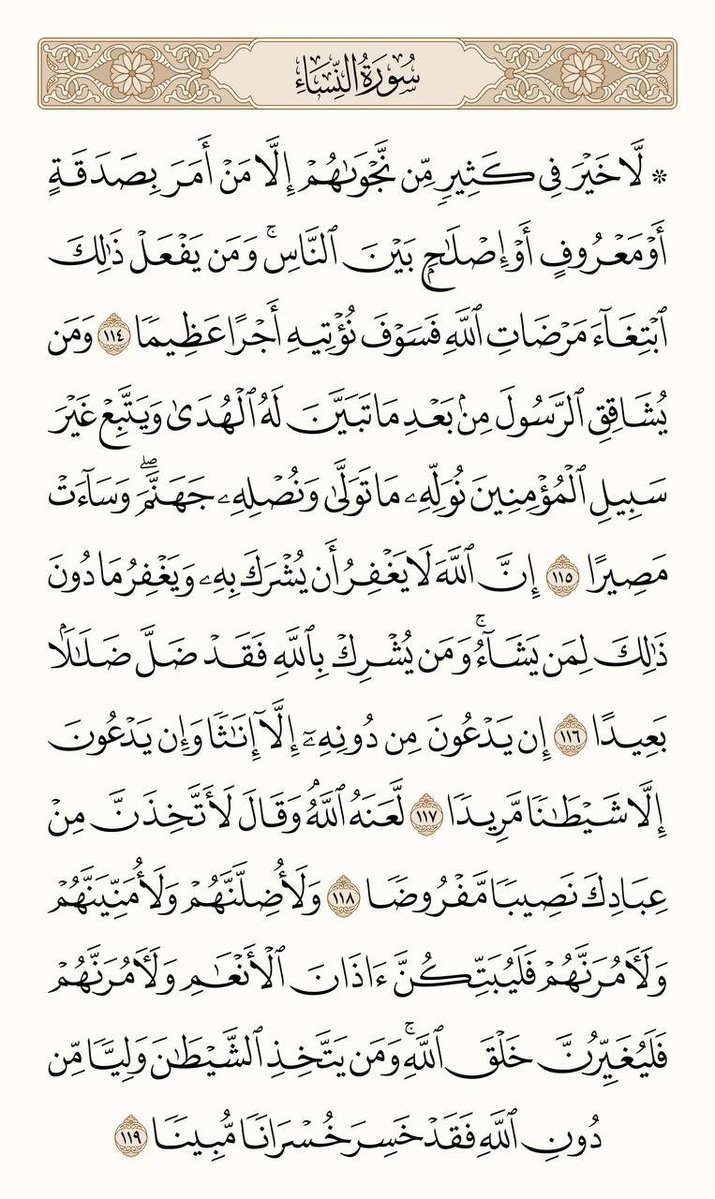 سُورَةُ النِّسَاءِ
۞ لَّا خَيْرَ فِي كَثِيرٍ مِّن نَّجْوَىٰهُمْ إِلَّا مَنْ أَمَرَ بِصَدَقَةٍ
أَوْ مَعْرُوفٍ أَوْ إِصْلَٰحٍۭ بَيْنَ ٱلنَّاسِۚ وَمَن يَفْعَلْ ذَٰلِكَ
ٱبْتِغَآءَ مَرْضَاتِ ٱللَّهِ فَسَوْفَ نُؤْتِيهِ أَجْرًا عَظِيمًا ١١٤ وَمَن
يُشَاقِقِ ٱلرَّسُولَ مِنۢ بَعْدِ مَا تَبَيَّنَ لَهُ ٱلْهُدَىٰ وَيَتَّبِعْ غَيْرَ
سَبِيلِ ٱلْمُؤْمِنِينَ نُوَلِّهِۦ مَا تَوَلَّىٰ وَنُصْلِهِۦ جَهَنَّمَۖ وَسَآءَتْ
مَصِيرًا ١١٥ إِنَّ ٱللَّهَ لَا يَغْفِرُ أَن يُشْرَكَ بِهِۦ وَيَغْفِرُ مَا دُونَ
ذَٰلِكَ لِمَن يَشَآءُۚ وَمَن يُشْرِكْ بِٱللَّهِ فَقَدْ ضَلَّ ضَلَٰلًۢا
بَعِيدًا ١١٦ إِن يَدْعُونَ مِن دُونِهِۦٓ إِلَّآ إِنَٰثًا وَإِن يَدْعُونَ
إِلَّا شَيْطَٰنًا مَّرِيدًا ١١٧ لَّعَنَهُ ٱللَّهُۘ وَقَالَ لَأَتَّخِذَنَّ مِنْ
عِبَادِكَ نَصِيبًا مَّفْرُوضًا ١١٨ وَلَأُضِلَّنَّهُمْ وَلَأُمَنِّيَنَّهُمْ
وَلَءَامُرَنَّهُمْ فَلَيُبَتِّكُنَّ ءَاذَانَ ٱلْأَنْعَٰمِ وَلَءَامُرَنَّهُمْ
فَلَيُغَيِّرُنَّ خَلْقَ ٱللَّهِۚ وَمَن يَتَّخِذِ ٱلشَّيْطَٰنَ وَلِيًّا مِّن
دُونِ ٱللَّهِ فَقَدْ خَسِرَ خُسْرَانًا مُّبِينًا ١١٩